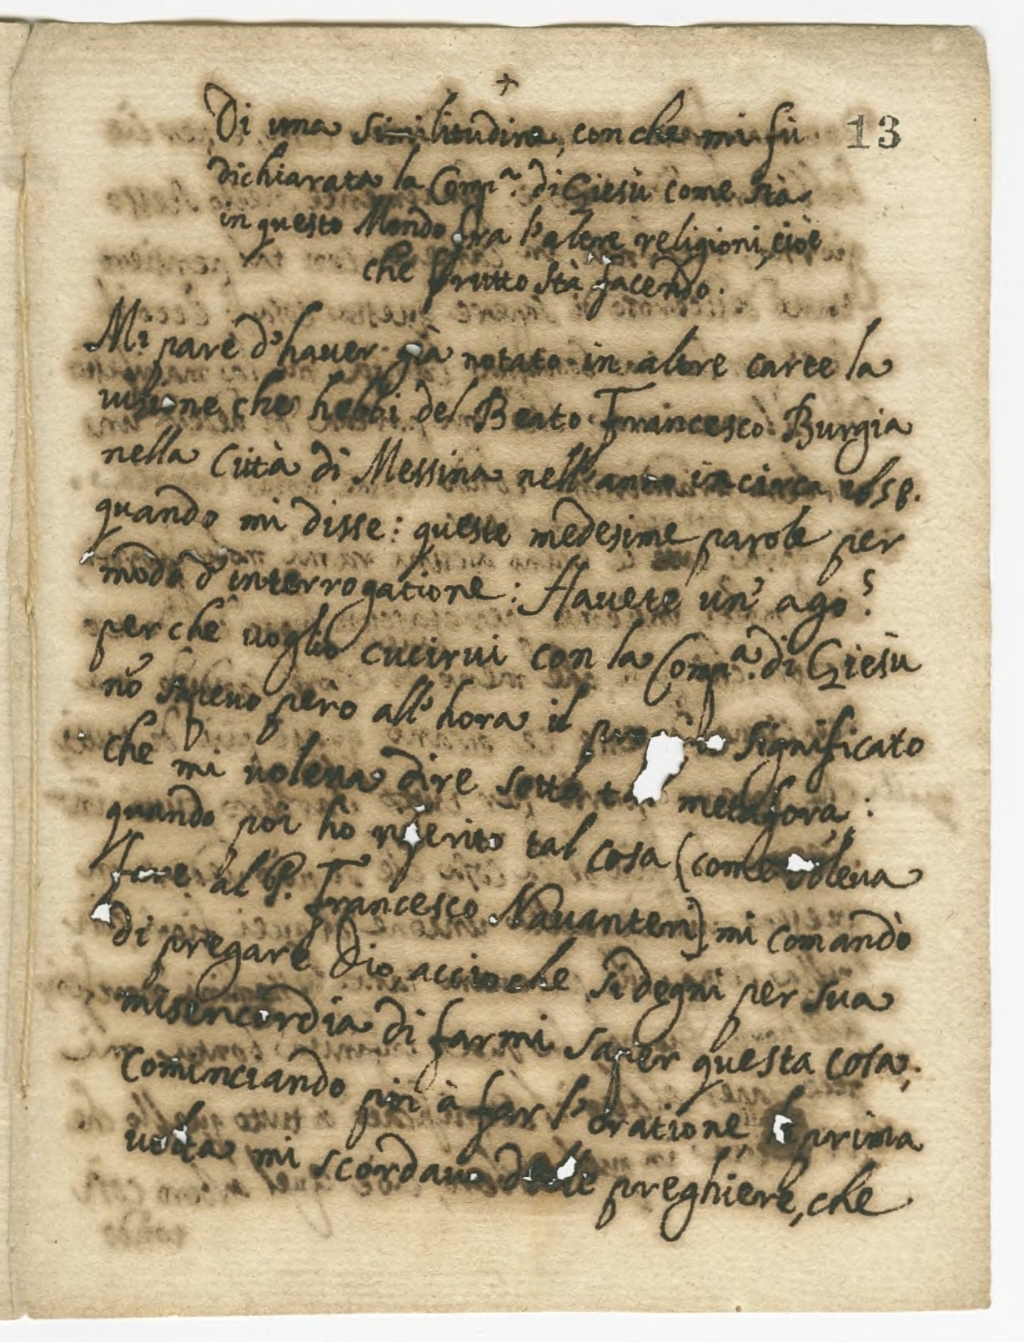 +
13
Di una similitudine, con che mi fù
dichiarata la Comp.ª di Giesù come stà
in questo Mondo fra l'altre religioni, cioè
che frutto stà facendo.
Mi pare d'haver già notato in altre carte la
visione che hebbi del Beato Francesco Burgia
nella Città di Messina nell'anno incirca 1658.
quando mi disse: queste medesime parole per
modo d'interrogatione: Havete un' ago?
perche voglio cucirvi con la Comp.ª di Giesù
nõ sapevo però all'hora il significato
che mi voleva dire sotto tal metafora:
quando poi hò riferito tal cosa (come soleva
fare al P. Francesco Navanteri) mi comandò
di pregare Dio, accioche si degni per sua
misericordia di farmi saper questa cosa,
Cominciando poi à far l'oratione la prima
volta mi scordavo delle preghiere, che